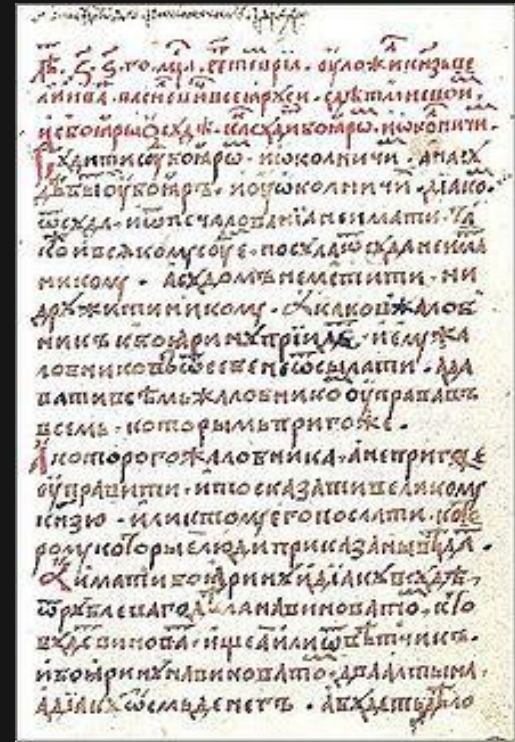 лѣ҃. ҂ꙃ. ꙅ. го. мцⷭ҇а. септеврїа. ѹложи кнⷥѧь ве
лиⷦ҇ ива. василевиⷱ҇ всеѧ рѹси. с дѣтми своиⷨ҇.
и с боѧры о сѹдѣ. каⷦ҇ сѹдиⷮ боѧрѡⷨ. и ѡколничиⷨ.
Сѹдити сѹⷣ боѧрѡⷨ. и ѡколничиⷨ. а на сѹ
дѣ быⷮ ѹ боѧръ. и ѹ ѡколничиⷯ дїако
ѿ сѹда. и ѿ печалованїа не имати. та
коⷤ и всѧкомѹ сѹⷣе. посѹла ѿ сѹда не има
никомѹ. а сѹдомъ не мстити. ни
дрѹжити никомѹ. А каков жалоб
никъ к боѧринѹ прїидеⷮ. и емѹ жа
лобниковъ ѿ себе не ѿсылати. а да
вати всѣмь жалобникоⷨ ѹправа въ
всемь. которымь пригоже.
А которого жалобника. а непригоⷤе
ѹправити. и то сказати великомѹ
кнѧзю. или к томѹ его послати. кото
ромѹ которые люди приказаны вѣдаⷮ.
А имати боѧринѹ и дїакѹ в сѹдѣ.
ѿ рѹблеваго дѣла на виноватоⷨ. кто
бѹдеⷮ виноваⷮ. ищеа или ѿвѣтчикъ.
и боѧринѹ на виноватоⷨ. два алтына.
а дїакѹ ѡсмь денегъ. а бѹдетъ дѣло